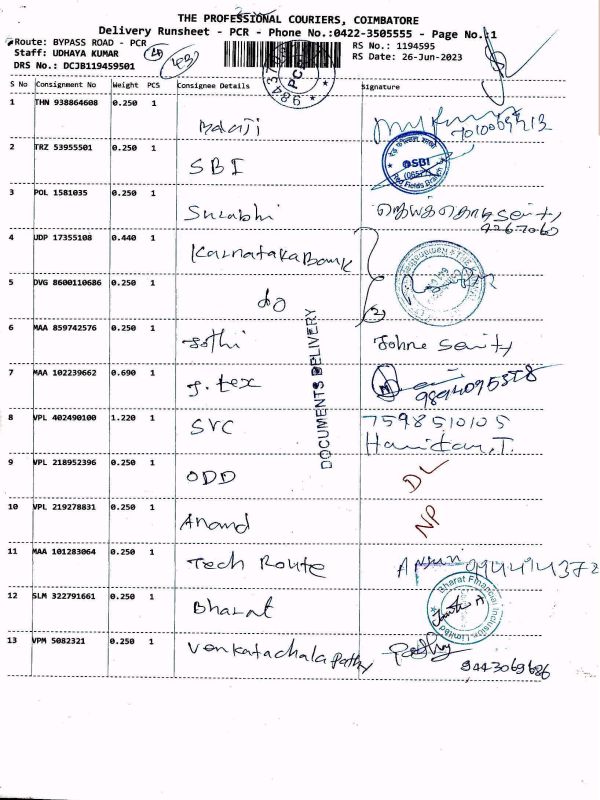 THE PROFESSIONAL COURIERS, COIMBATORE
Delivery Runsheet - PCR - Phone No.:0422-3505555 - Page No.:1
Route: BYPASS ROAD - PCR
RS No.: 1194595
Staff: UDHAYA KUMAR
RS Date: 26-Jun-2023
DRS No.: DCJB119459501
S No Consignment No Weight PCS Consignee Details Signature
1 THN 938864608 0.250 1 Balaji
2 TRZ 53955501 0.250 1 SBI
SBI
Red Fields Branch
3 POL 1581035 0.250 1 Surabhi
4 UDP 17355108 0.440 1 Karnataka Bank
5 DVG 8600110686 0.250 1 do
6 MAA 859742576 0.250 1 Jothi
DOCUMENTS DELIVERY
7 MAA 102239662 0.690 1 J. tex
8 VPL 402490100 1.220 1 SVC 7598510105
9 VPL 218952396 0.250 1 ODD DL
10 VPL 219278831 0.250 1 Anand NP
11 MAA 101283064 0.250 1 Tech Route
12 SLM 322791661 0.250 1 Bharat
Bharat Financial Inclusion Limited
13 VPM 5082321 0.250 1 Venkatachalapathy
9443069686